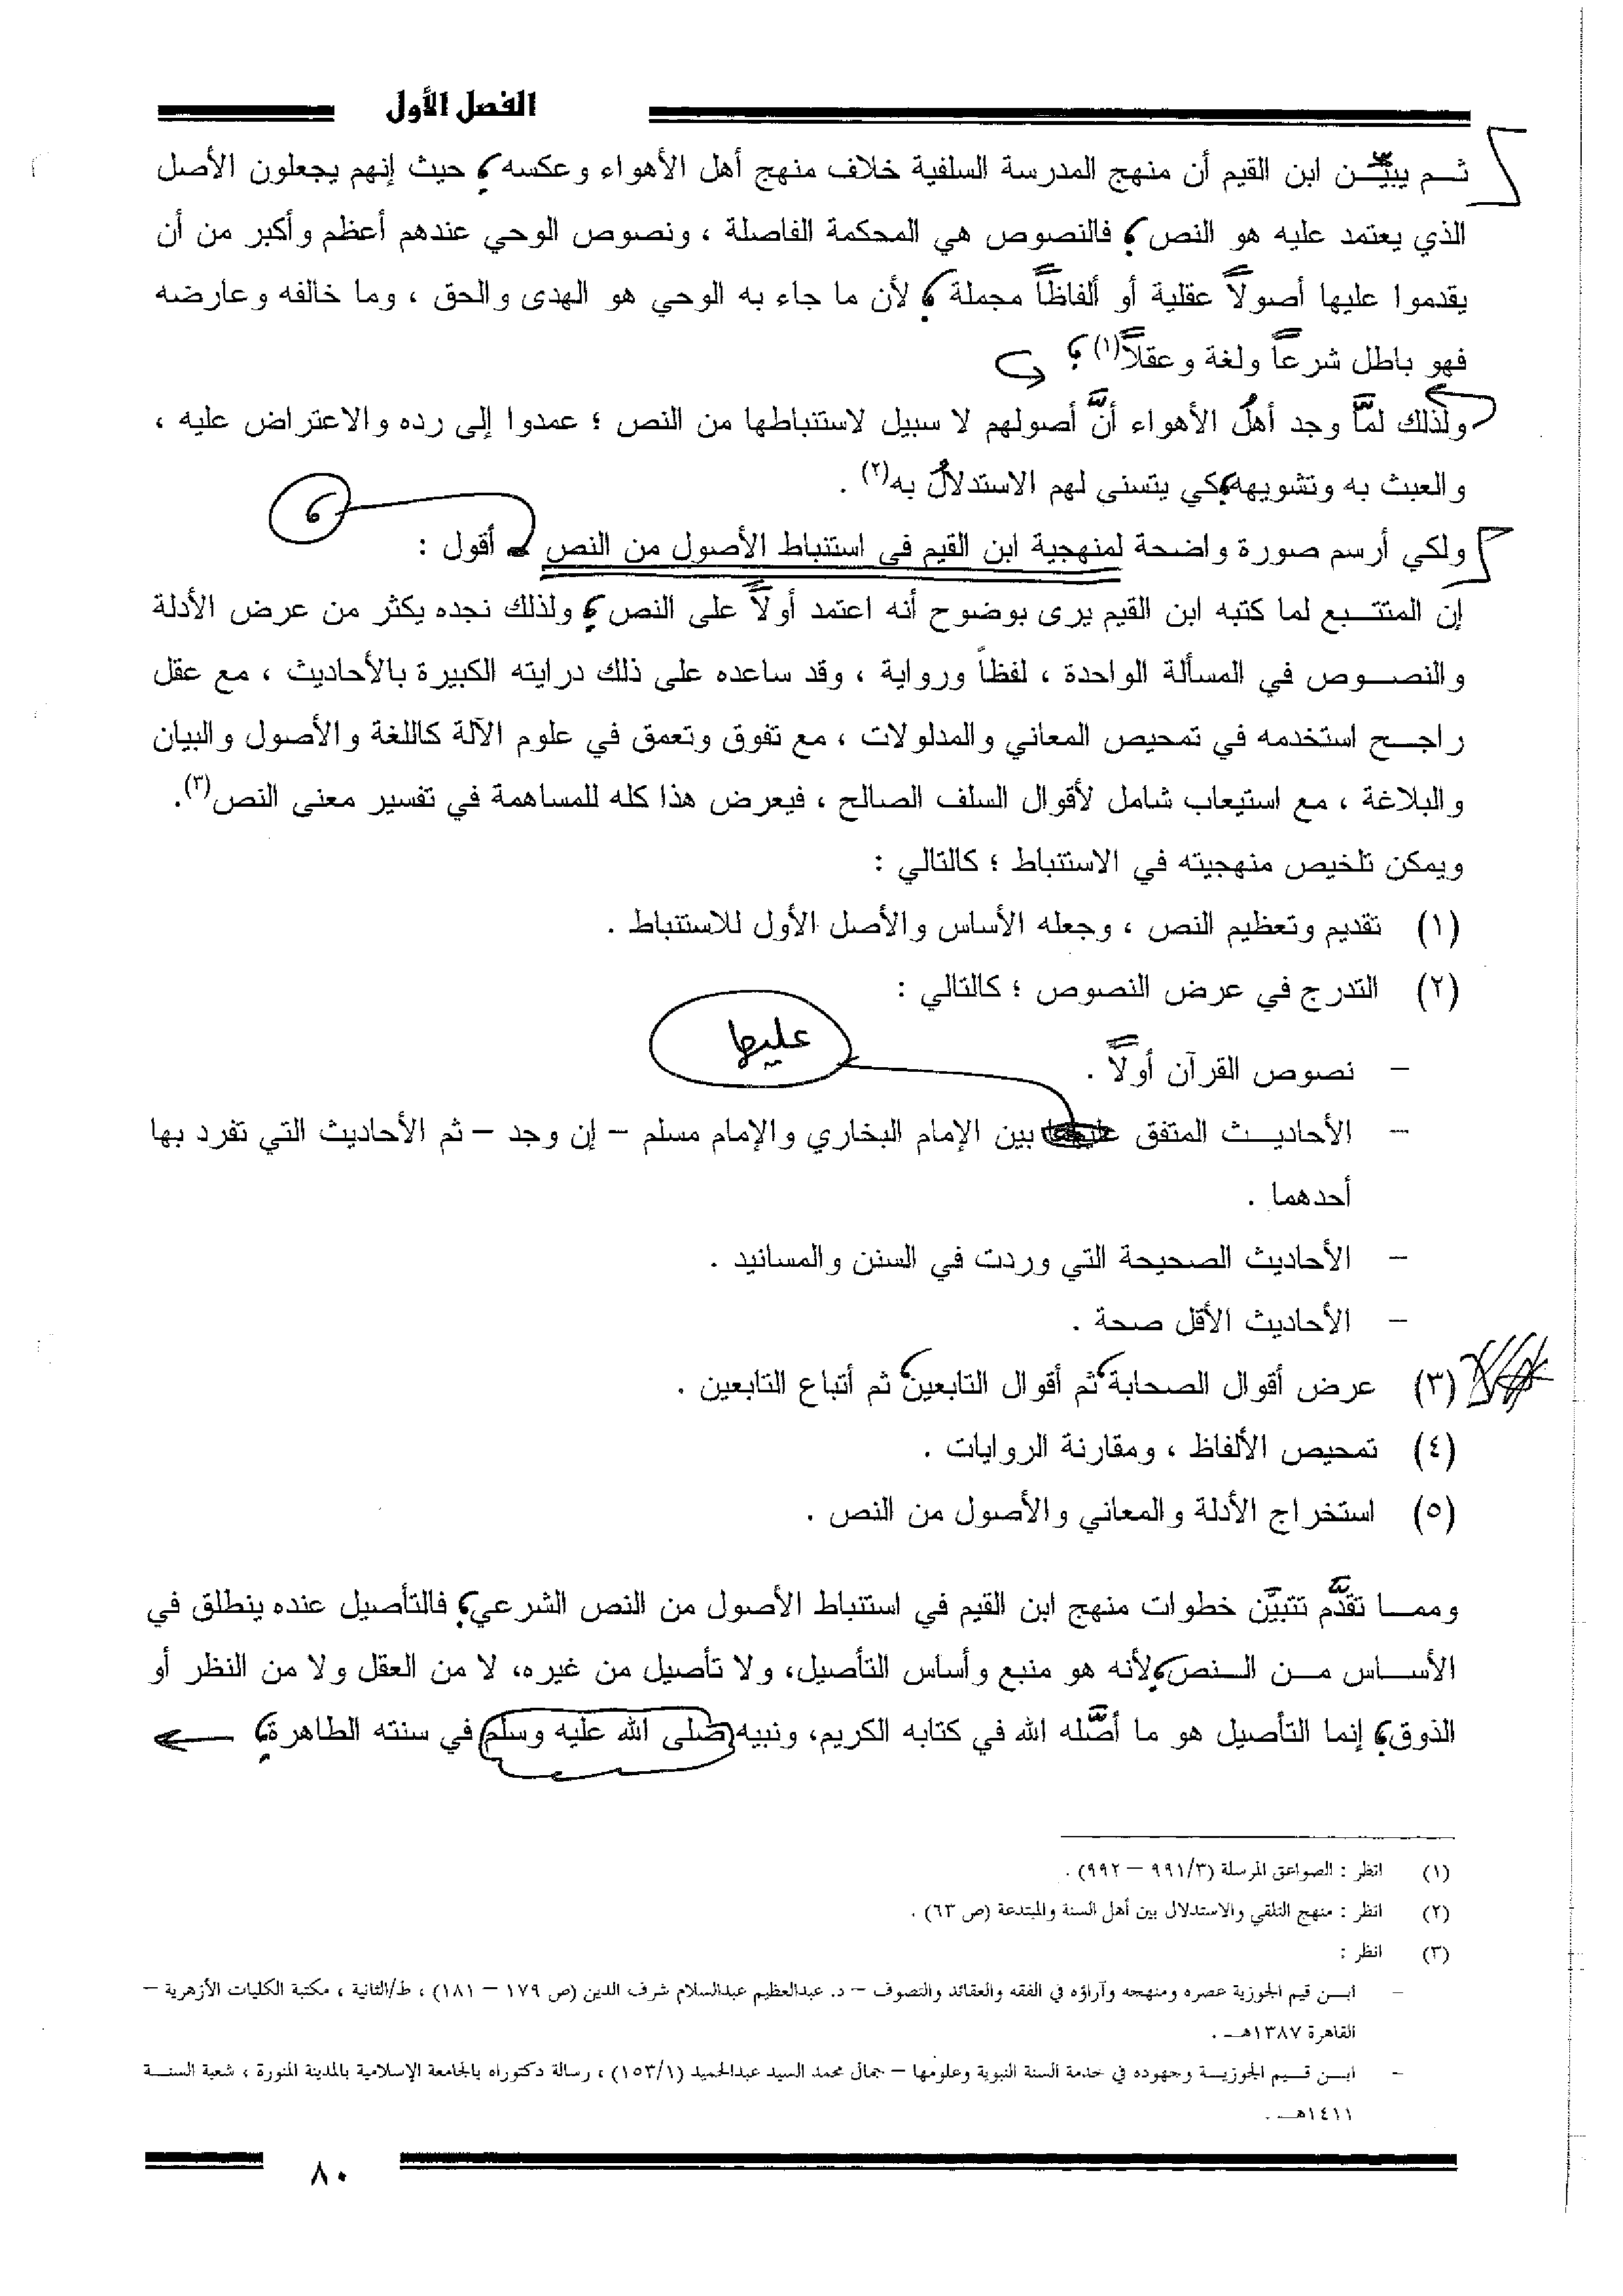 الفصل الأول
ثم يبيّن ابن القيم أن منهج المدرسة السلفية خلاف منهج أهل الأهواء وعكسه ؛ حيث إنهم يجعلون الأصل
الذي يعتمد عليه هو النص ؛ فالنصوص هي المحكمة الفاصلة ، ونصوص الوحي عندهم أعظم وأكبر من أن
يقدموا عليها أصولاً عقلية أو ألفاظاً مجملة ؛ لأن ما جاء به الوحي هو الهدى والحق ، وما خالفه وعارضه
فهو باطل شرعاً ولغة وعقلاً(١) ؛
ولذلك لمَّا وجد أهلُ الأهواء أنَّ أصولهم لا سبيل لاستنباطها من النص ؛ عمدوا إلى رده والاعتراض عليه ،
والعبث به وتشويهه كي يتسنى لهم الاستدلالُ به(٢) .
،
ولكي أرسم صورة واضحة لمنهجية ابن القيم في استنباط الأصول من النص أقول :
إن المتتبع لما كتبه ابن القيم يرى بوضوح أنه اعتمد أولاً على النص ؛ ولذلك نجده يكثر من عرض الأدلة
والنصوص في المسألة الواحدة ، لفظاً ورواية ، وقد ساعده على ذلك درايته الكبيرة بالأحاديث ، مع عقل
راجح استخدمه في تمحيص المعاني والمدلولات ، مع تفوق وتعمق في علوم الآلة كاللغة والأصول والبيان
والبلاغة ، مع استيعاب شامل لأقوال السلف الصالح ، فيعرض هذا كله للمساهمة في تفسير معنى النص(٣).
ويمكن تلخيص منهجيته في الاستنباط ؛ كالتالي :
(١) تقديم وتعظيم النص ، وجعله الأساس والأصل الأول للاستنباط .
(٢) التدرج في عرض النصوص ؛ كالتالي :
عليها
– نصوص القرآن أولاً .
– الأحاديث المتفق بين الإمام البخاري والإمام مسلم – إن وجد – ثم الأحاديث التي تفرد بها
أحدهما .
– الأحاديث الصحيحة التي وردت في السنن والمسانيد .
– الأحاديث الأقل صحة .
(٣) عرض أقوال الصحابة، ثم أقوال التابعين، ثم أتباع التابعين .
(٤) تمحيص الألفاظ ، ومقارنة الروايات .
(٥) استخراج الأدلة والمعاني والأصول من النص .
ومما تقدَّم تتبيَّن خطوات منهج ابن القيم في استنباط الأصول من النص الشرعي ؛ فالتأصيل عنده ينطلق في
الأساس من النص ؛ لأنه هو منبع وأساس التأصيل، ولا تأصيل من غيره، لا من العقل ولا من النظر أو
الذوق ؛ إنما التأصيل هو ما أصَّله الله في كتابه الكريم، ونبيه صلى الله عليه وسلم في سنته الطاهرة ؛
(١) انظر : الصواعق المرسلة (٩٩١/٣ – ٩٩٢) .
(٢) انظر : منهج التلقي والاستدلال بين أهل السنة والمبتدعة (ص ٦٣) .
(٣) انظر :
– ابن قيم الجوزية عصره ومنهجه وآراؤه في الفقه والعقائد والتصوف – د. عبدالعظيم عبدالسلام شرف الدين (ص ١٧٩ – ١٨١) ، ط/الثانية ، مكتبة الكليات الأزهرية –
القاهرة ١٣٨٧هـ .
– ابن قيم الجوزية وجهوده في خدمة السنة النبوية وعلومها – جمال محمد السيد عبدالحميد (١٥٣/١) ، رسالة دكتوراه بالجامعة الإسلامية بالمدينة المنورة ، شعبة السنة
١٤١١هـ .
٨٠